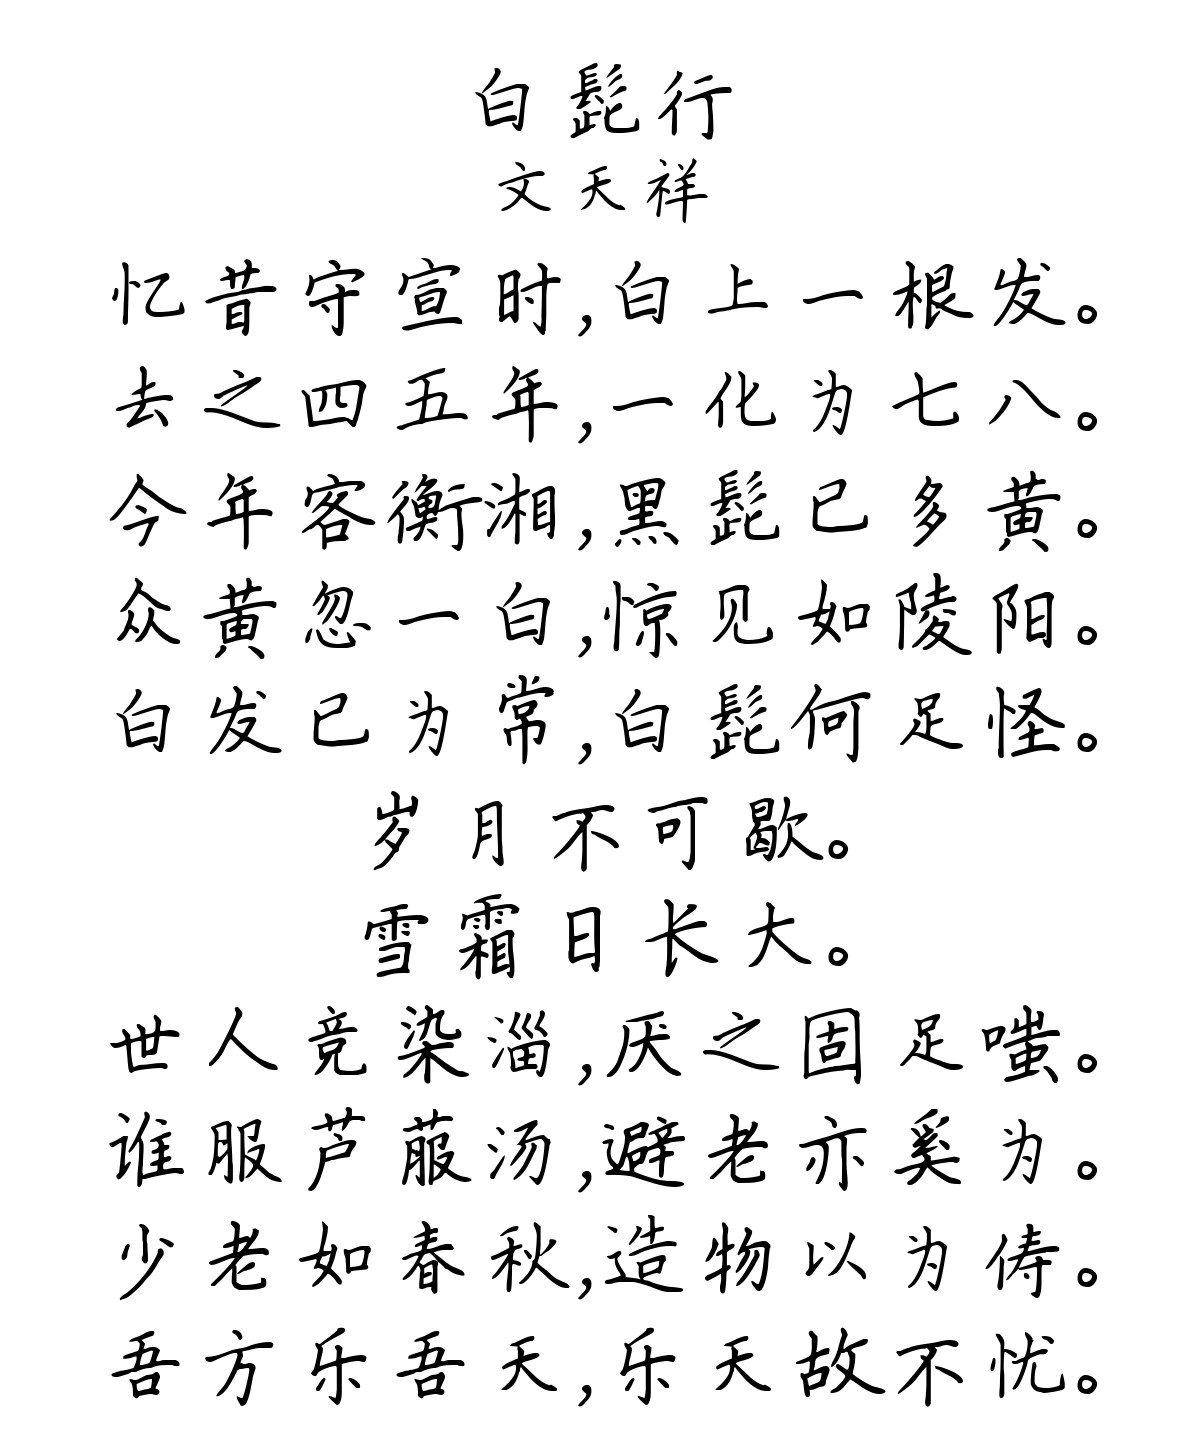 白髭行
文天祥
忆昔守宣时,白上一根发。
去之四五年,一化为七八。
今年客衡湘,黑髭已多黄。
众黄忽一白,惊见如陵阳。
白发已为常,白髭何足怪。
岁月不可歇。
雪霜日长大。
世人竞染淄,厌之固足嗤。
谁服芦菔汤,避老亦奚为。
少老如春秋,造物以为俦。
吾方乐吾天,乐天故不忧。